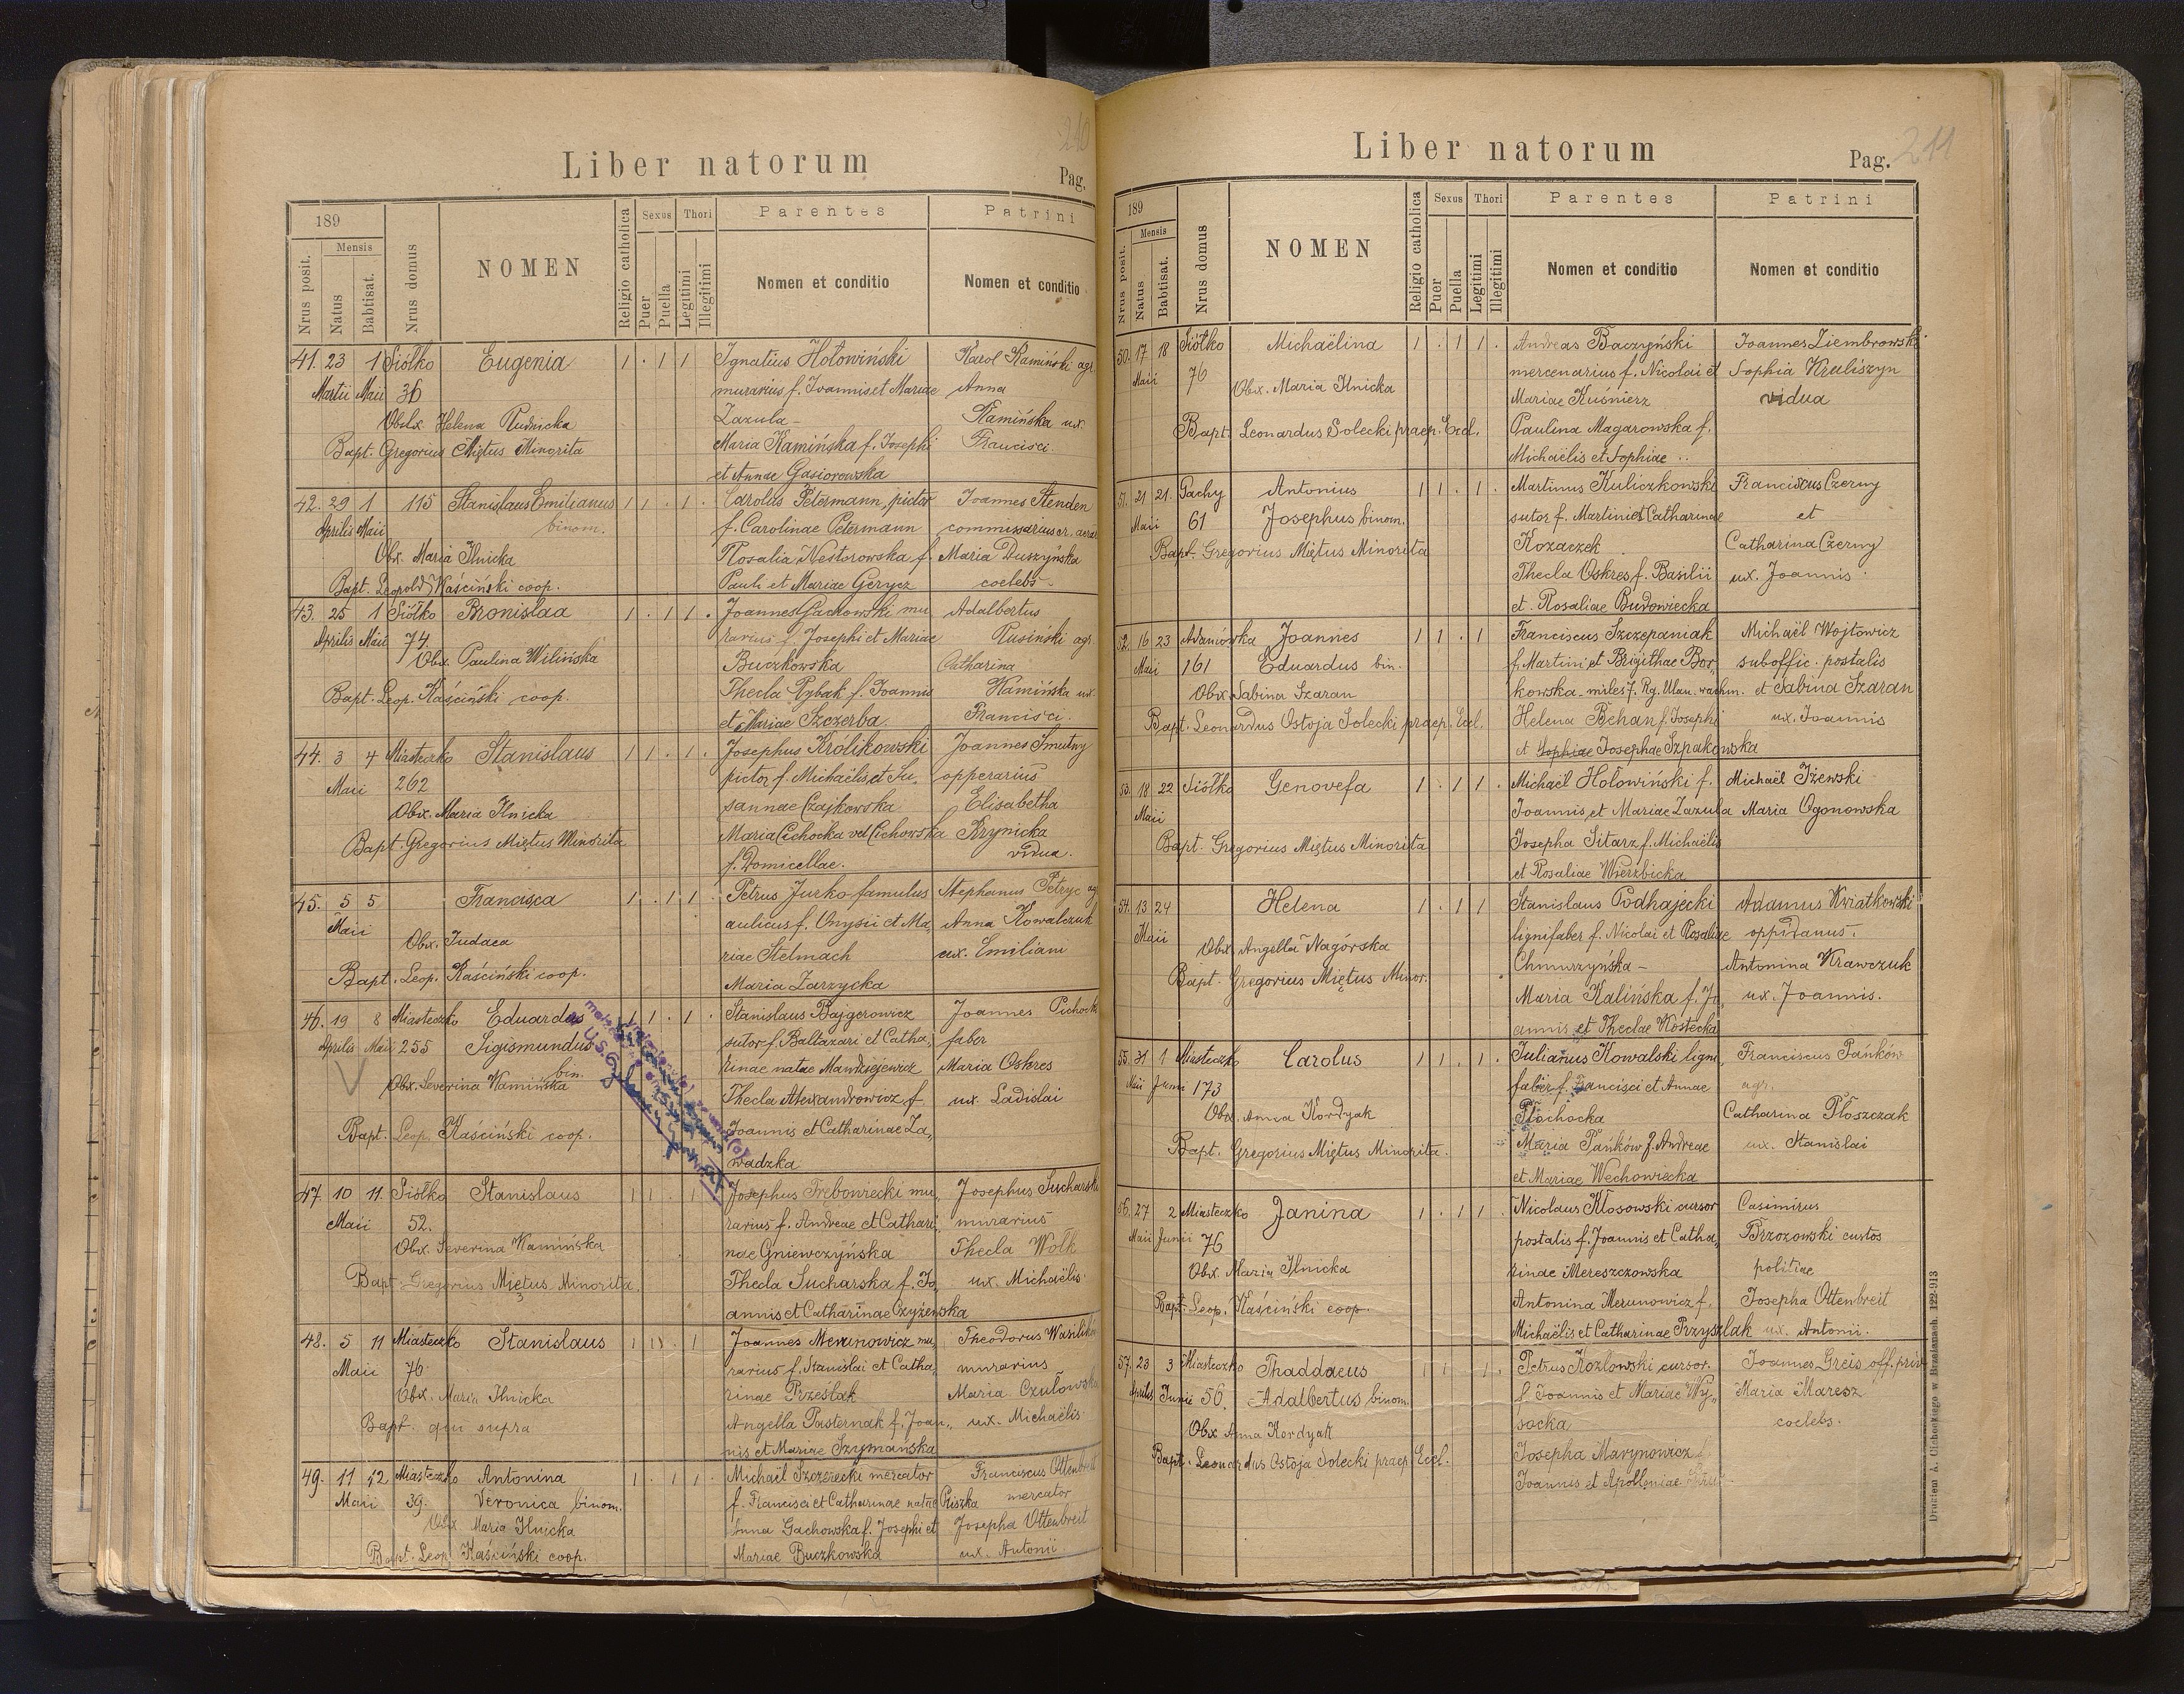 210
Liber natorum
Pag.
189
Mensis
Nrus posit.
Natus
Babtisat.
Nrus domus
NOMEN
Religio catholica
Sexus
Puer
Puella
Thori
Legitimi
Illegitimi
Parentes
Nomen et conditio
Patrini
Nomen et conditio
41. 23 1 Siółko Eugenia 1 . 1 1 Ignatius Hołowiński Karol Kamiński agr.
Martii Maii 36 murarius f. Ioannis et Mariae Anna
Obstx Helena Rudnicka Zazula - Kamińska ux.
Bapt. Gregorius Miętus Minorita Maria Kamińska f. Josephi Francisci.
et Annae Gasiorowska
42. 29 1 115 Stanislaus Emilianus 1 1 . 1 . Carolus Petermann, pictor Joannes Stenden
Aprilis Maii binom. f. Carolinae Petermann commissarius er. aerar
Obx. Maria Ilnicka Rosalia Nestorowska f. Maria Duszyńska
Bapt. Leopold Kaściński coop. Pauli et Mariae Gerycz coelebs
43. 25 1 Siółko Bronislaa 1 . 1 1 . Joannes Gachowski mu Adalbertus
Aprilis Maii 74. rarius f. Josephi et Mariae Rusiński agr.
Obx. Paulina Wilińska Buczkowska Catharina
Bapt. Leop. Kaściński coop. Thecla Rybak f. Joannis Kamińska ux.
et Mariae Szczerba. Francisci.
44. 3 4 Miasteczko Stanislaus 1 1 . 1 . Josephus Królikowski Joannes Smutny
Maii 262 pictor f. Michaëlis et Su- opperarius
Obx. Maria Ilnicka sannae Czajkowska Elisabetha
Bapt. Gregorius Miętus Minorita Maria Cichocka vel Cichowska Krynicka
f. Domicellae. vidua.
45. 5 5 Francisca 1 . 1 1 . Petrus Jurko famulus Stephanus Petryc ag
Maii aulicus f. Onysii et Ma, Anna Kowalczuk
Obx. Iudaea riae Stelmach ux. Emiliani
Bapt. Leop. Kaściński coop. Maria Zarzycka
46. 19 8 Miasteczko Eduardus 1 1 . 1 . Stanislaus Bajgerowicz Joannes Pichock
Aprilis Maii 255 Sigismundus sutor f. Baltazari et Catha, faber
bin. rinae natae Mandziejewicz Maria Oskres
Obx. Severina Kamińska Thecla Alexandrowicz f. ux. Ladislai
Bapt. Leop. Kaściński coop. Joannis et Catharinae Za,
wadzka
47. 10 11. Siółko Stanislaus 1 1 . 1 Josephus Trebowiecki mu, Josephus Sucharski
Maii 52. rarius f. Andreae et Cathari, murarius
Obx. Severina Kamińska nae Gniewczyńska Thecla Wolk
Bapt. Gregorius Miętus Minorita. Thecla Sucharska f. Jo, ux. Michaëlis
annis et Catharinae Czyżewska
48. 5 11 Miasteczko Stanislaus 1 1 . 1 Joannes Merunowicz mu,
Maii 76 rarius f. Stanislai et Catha, murarius
Obx. Maria Ilnicka rinae Prześlak Maria Czułowska
Bapt. qui supra Angella Pasternak f. Joan,, ux. Michaëlis
nis et Mariae Szymańska
49. 11 12 Miasteczko Antonina 1 . 1 1 . Michaël Szczerecki mercator Franciscus Ottenbreit
Maii 39. Veronica binom. f. Francisci et Catharinae natae Piszka mercator
Obx. Maria Ilnicka Anna Gachowska f. Josephi et Josepha Ottenbreit
Bapt. Leop. Kaściński coop. Mariae Buczkowska ux. Antonii.
211
Liber natorum
Pag.
189
Mensis
Nrus posit.
Natus
Babtisat.
Nrus domus
NOMEN
Religio catholica
Sexus
Puer
Puella
Thori
Legitimi
Illegitimi
Parentes
Nomen et conditio
Patrini
Nomen et conditio
50. 17 18 Siółko Michaëlina 1 . 1 1 . Andreas Baczyński Joannes Ziembrowski
Maii 76 mercenarius f. Nicolai et Sophia Kruliszyn
Obx. Maria Ilnicka Mariae Kuśnierz vidua
Bapt. Leonardus Solecki praep. Eccl. Paulina Magarowska f.
Michaëlis et Sophiae ..
51. 21 21. Pachy Antonius 1 1 . 1 . Martinus Kuliczkowski Franciscus Czerny
Maii 61 Josephus binom. sutor f. Martini et Catharinae et
Bapt. Gregorius Miętus Minorita Kozaczek Catharina Czerny
Thecla Oskres f. Basilii ux. Joannis
et. Rosaliae Budowiecka
52. 16 23 Adamówka Joannes 1 1 . 1 Franciscus Szczepaniak Michaël Wojtowicz
Maii 161 Eduardus bin. f. Martini et Brigithae Bor, suboffic. postalis
Obx. Sabina Szaran kowska. miles 7. Rg. Ulan. wachm. et Sabina Szaran
Bapt. Leonardus Ostoja Solecki praep. Eccl. Helena Bchan f. Josephi ux. Joannis
et Sophiae Josephae Szpakowska
53. 18 22 Siółko Genovefa 1 . 1 1 . Michaël Hołowiński f. Michaël Iżewski
Maii Joannis et Mariae Zazula Maria Ogonowska
Bapt. Gregorius Miętus Minorita Josepha Sitarz f. Michaëlis
et Rosaliae Wierzbicka
54. 13 24 Helena 1 . 1 1 Stanislaus Podhajecki Adamus Kwiatkowski
Maii lignifaber f. Nicolai et Rosaliae oppidanus.
Obx. Angella Nagórska Chmurzyńska - Antonina Krawczuk
Bapt. Gregorius Miętus Minor. Maria Kalińska f. Jo, ux. Joannis.
annis et Theclae Kostecka
55. 31 1 Miasteczko Carolus 1 1 . 1 . Julianus Kowalski ligni, Franciscus Pańków
Maii Junii 173 faber f. Francisci et Annae agr.
Obx. Anna Kordyak Płochocka Catharina Płoszczak
Bapt. Gregorius Miętus Minorita. Maria Pańków f. Andreae ux. Stanislai
et Mariae Wechowiecka
56. 27 2 Miasteczko Janina 1 . 1 1 . Nicolaus Kłosowski cursor Casimirus
Maii Junii 76 postalis f. Joannis et Catha, Brzozowski custos
Obx. Maria Ilnicka rinae Mereszczowska politiae
Bapt. Leop. Kaściński coop. Antonina Merunowicz f. Josepha Ottenbreit
Michaëlis et Catharinae Przyszlak ux. Antonii.
57. 23 3 Miasteczko Thaddaeus 1 1 1. Petrus Kozłowski cursor. Joannes Greis off. priv
Aprilis Junii 56. Adalbertus binom. f. Joannis et Mariae Wy,, Maria Maresz
Obx Anna Kordyak socka coelebs.
Bapt. Leonardus Ostoja Solecki praep. Eccl. Josepha Marynowicz f.
Joannis et Apolloniae
Drukiem A. Cichockiego w Brzeżanach. 122-913